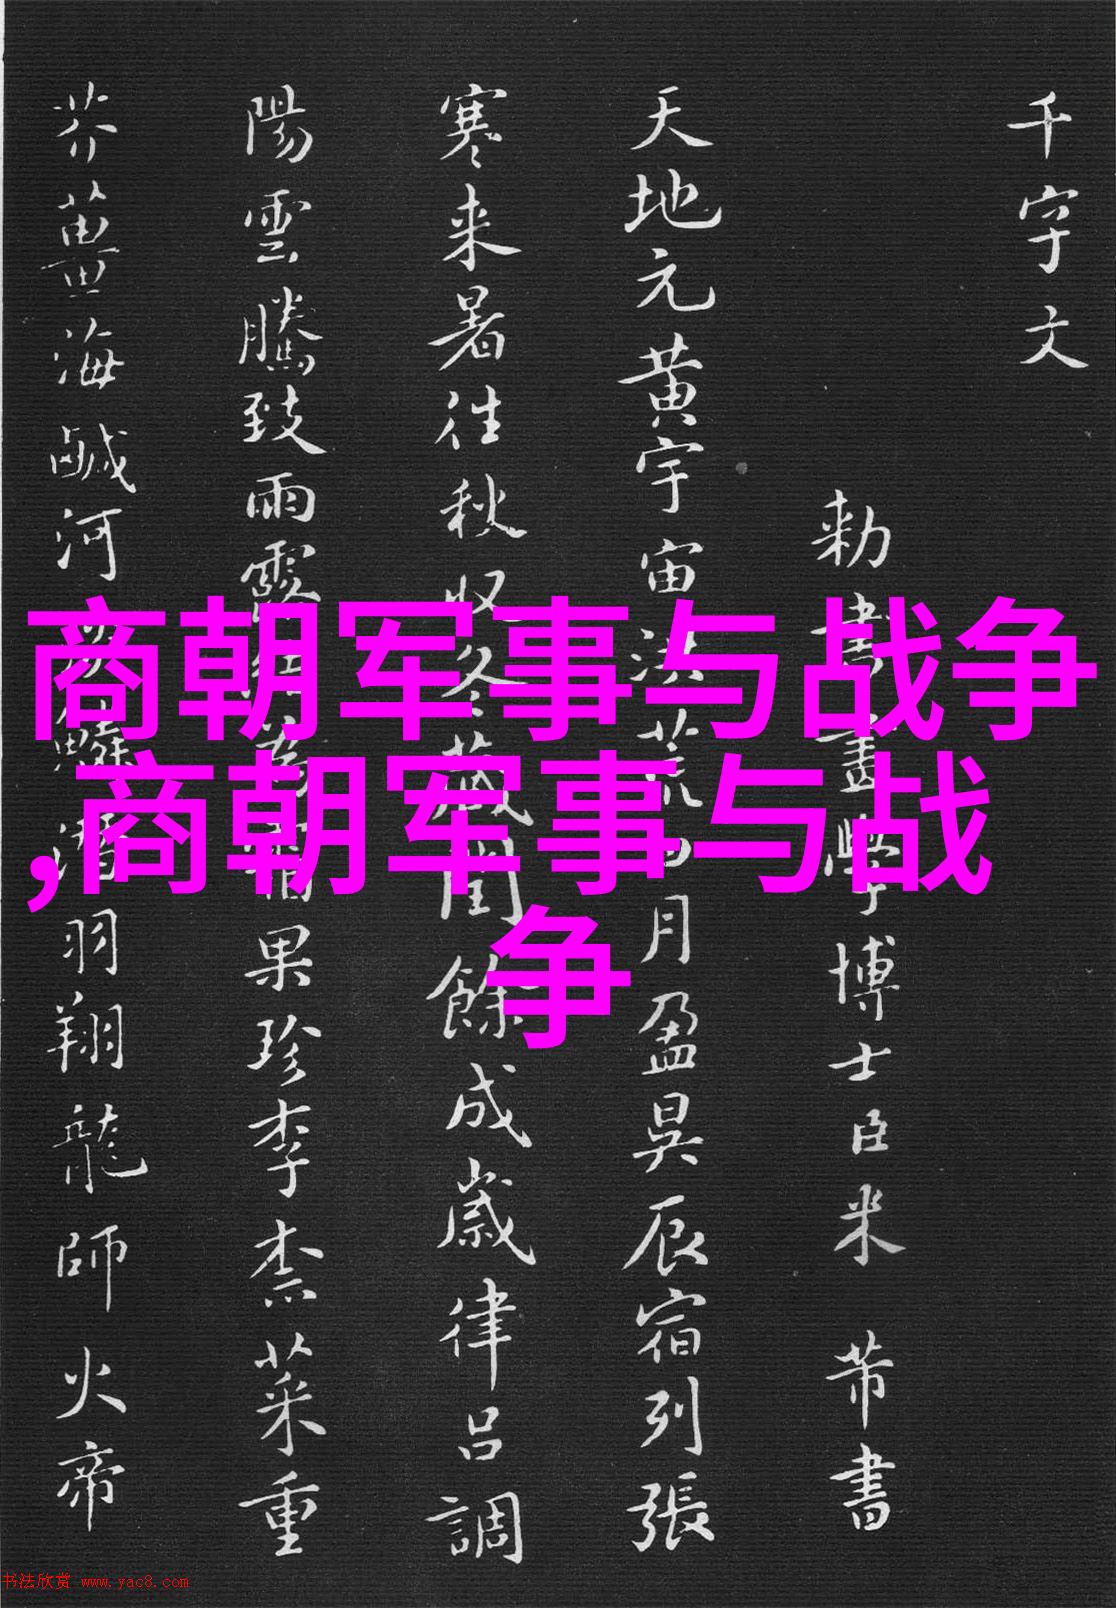 千字文
勅書畫學博士臣米芾書
天地元黄宇宙洪荒日月盈昃辰宿列張
寒来暑往秋収冬藏閏餘成歲律吕調
陽雲騰致雨露結為霜果珍李柰菜重
芥薑海鹹河淡鱗潛羽翔龍師火帝
商朝军事与战争
,商朝军事与战
争
书法欣赏 www.yac8.com